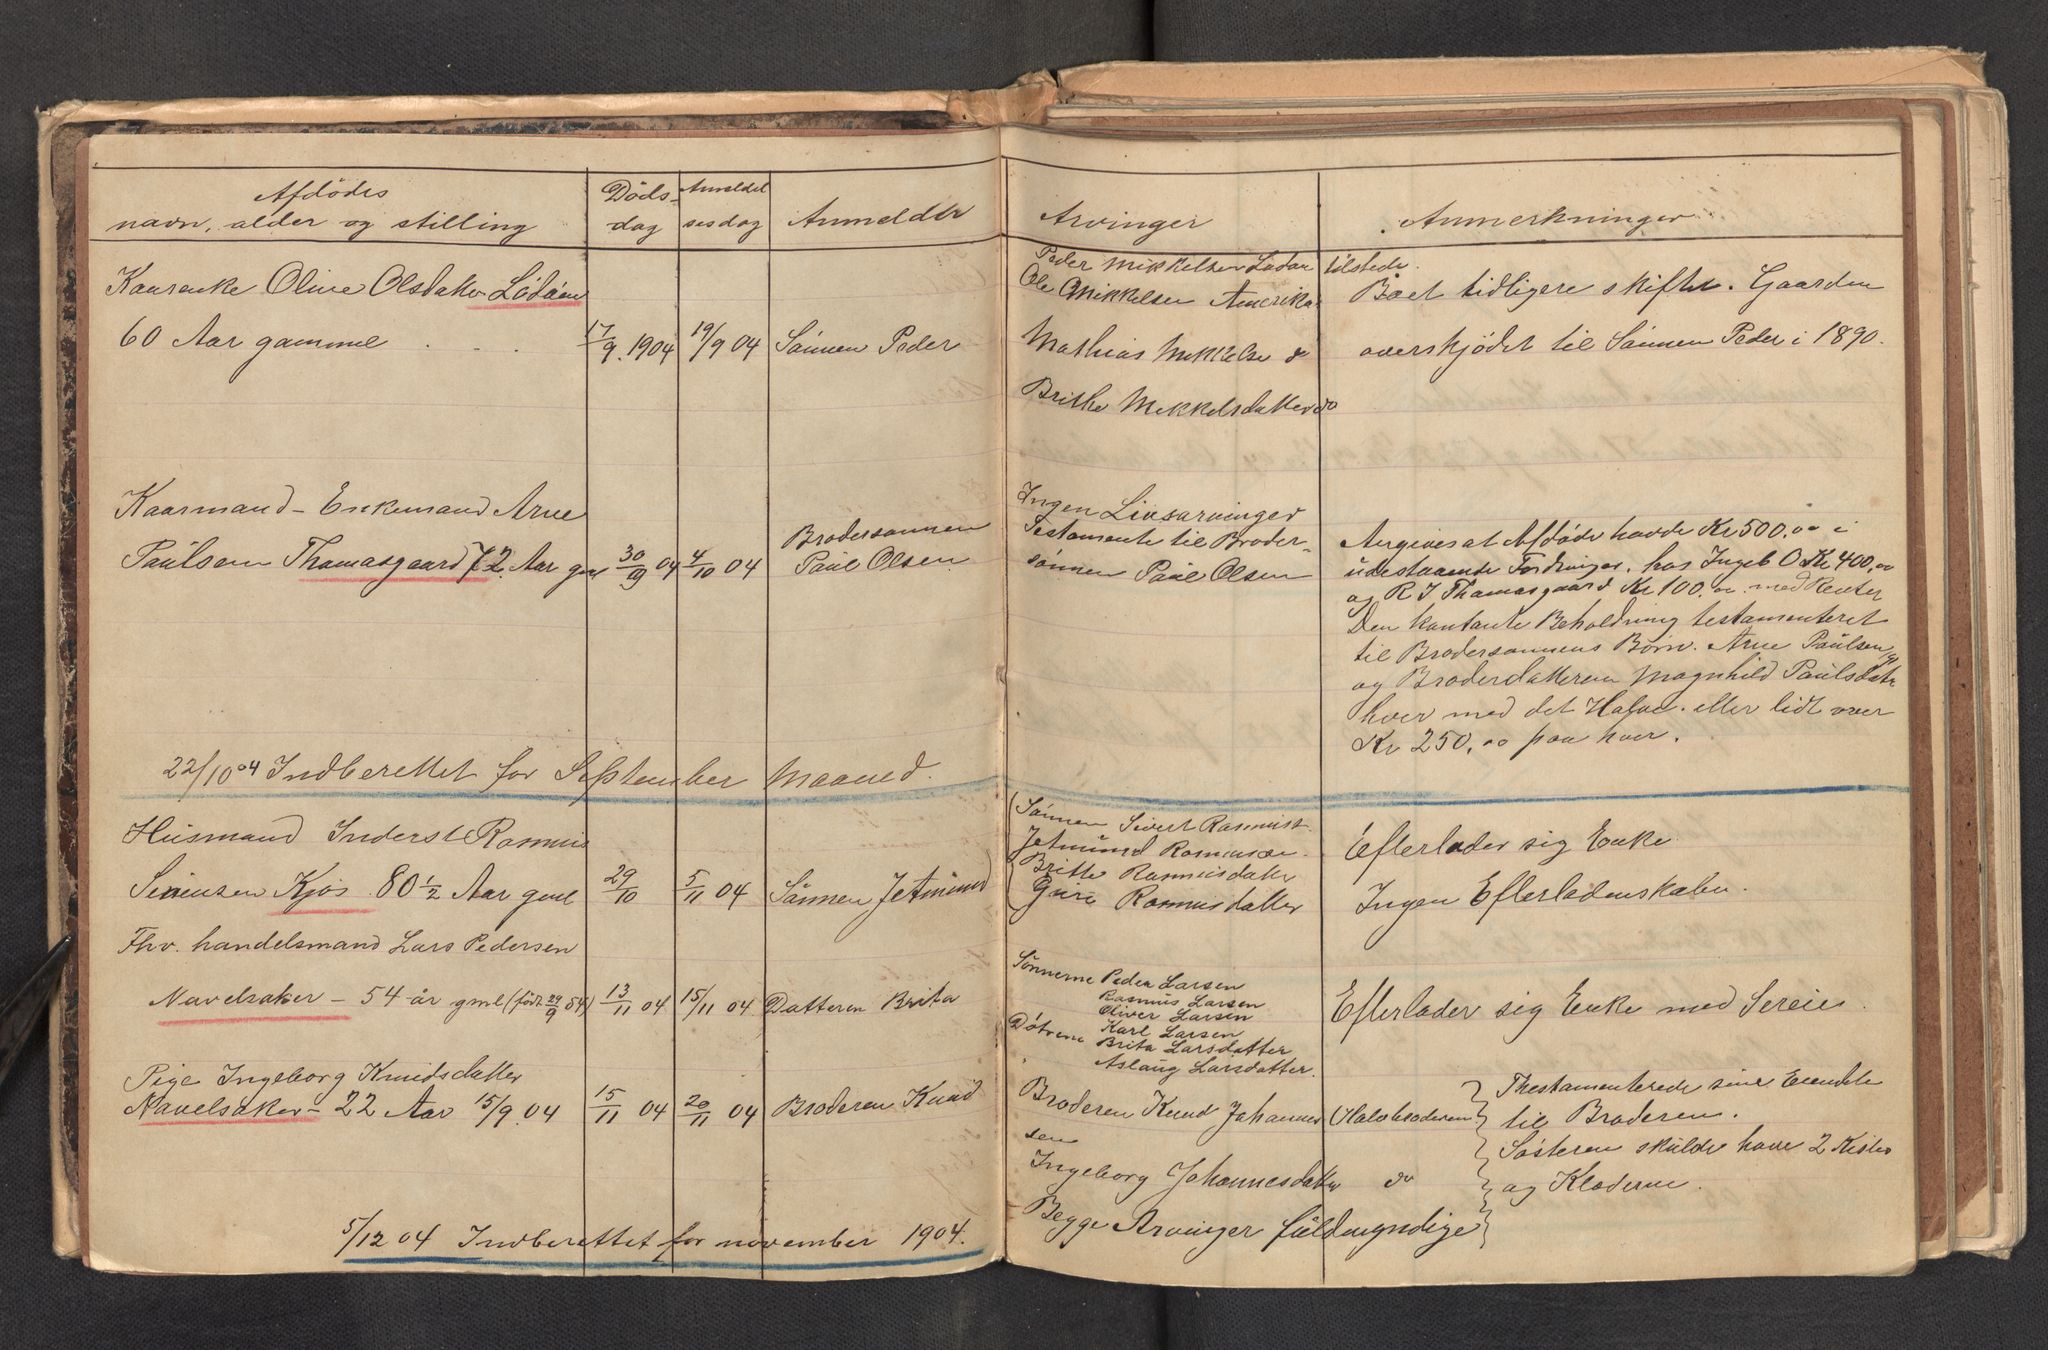 Afdødes
navn, alder og stilling
Døds-
dag
Anmeldel
sesdag
Anmelder
Arvinger
Anmerkninger
Kaarenke Olive Olsdatter Lødøen
60 Aar gammel . . .
17/9. 1904
19/9 04
Sønnen Peder
Peder Mikkelsen Lødøen tilstede.
Ole Mikkelsen Amerika
Mathias Mikkelse do
Brithe Mikkelsdatter do
Boet tidligere skiftet. Gaarden
overskjødet til Sønnen Peder i 1890.
Kaarmand - Enkemand Arne
Paulsen Thomasgaard 72 Aar gml
30/9 04
4/10 04
Brodersønnen
Paul Olsen
Ingen Livsarvinger
Testamente til Broder-
sønnen Paul Olsen
Angives at Afdøde havde Kr 500,00 i
udestaaende Fordringer, hos Ingeb O Kr 400,00
og R I Thomasgaard Kr 100,00. med Renter
Den kontante Beholdning testamenteret
til Brodersønnens Børn. Arne Paulsen
og Broderdatteren Magnhild Paulsdatr
hver med det Halve. eller lidt over
Kr 250,00 paa hver.
22/10 04 Indberettet for September Maaned.
Husmand Inderst Rasmus
Sivensen Kjøs 80 1/2 Aar gml
29/10
5/11 04
Sønnen Jetmund
Sønnen Sivert Rasmuss.
Jetmund Rasmusse
Britte Rasmusdatter
Guri Rasmusdatter
Efterlader sig Enke
Ingen Efterladenskaber.
Fhv. handelsmand Lars Pedersen
Navelsaker - 54 år gml (født 29/9 54)
13/11 04
15/11 04
Datteren Brita
Sønnerne Peder Larsen
Rasmus Larsen
Oliver Larsen
Karl Larsen
Døtrene Brita Larsdatter
" Aslaug Larsdatter.
Efterlader sig Enke med Sereie.
Pige Ingeborg Knudsdatter
Navelsaker - 22 Aar 15/9 04
15/11 04
20/11 04
Broderen Knud
Broderen Knud Johannes Halvbroderen
sen
Ingeborg Johannesdatter do
Begge Arvinger fuldmyndige
Thestamenterede sine Eiendele
til Broderen.
Søsteren skulde have 2 Kister
og Klæderne.
5/12 04 Indberettet for november 1904.